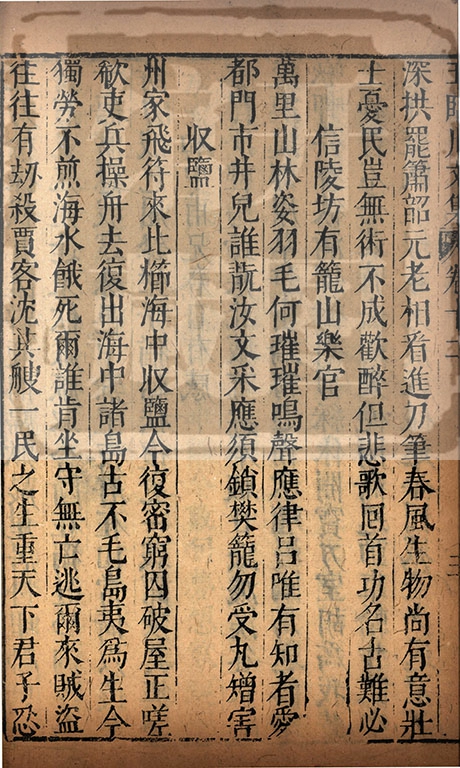 王臨川文集 卷十二 三
深拱罷簫韶元老相看進刀筆春風生物尚有意壯
士憂民豈無術不成歡醉但悲歌回首功名古難必
信陵坊有籠山樂官
萬里山林姿羽毛何璀璀鳴聲應律呂唯有知者愛
都門市井兒誰翫汝文采應須鎖樊籠勿受丸矰害
收鹽
州家飛符來比櫛海中收鹽今復密窮囚破屋正嗟
欷吏兵操舟去復出海中諸島古不毛島夷爲生今
獨勞不煎海水餓死爾誰肯坐守無亡逃爾來賊盜
往往有刼殺賈客沈其艘一民之生重天下君子忍